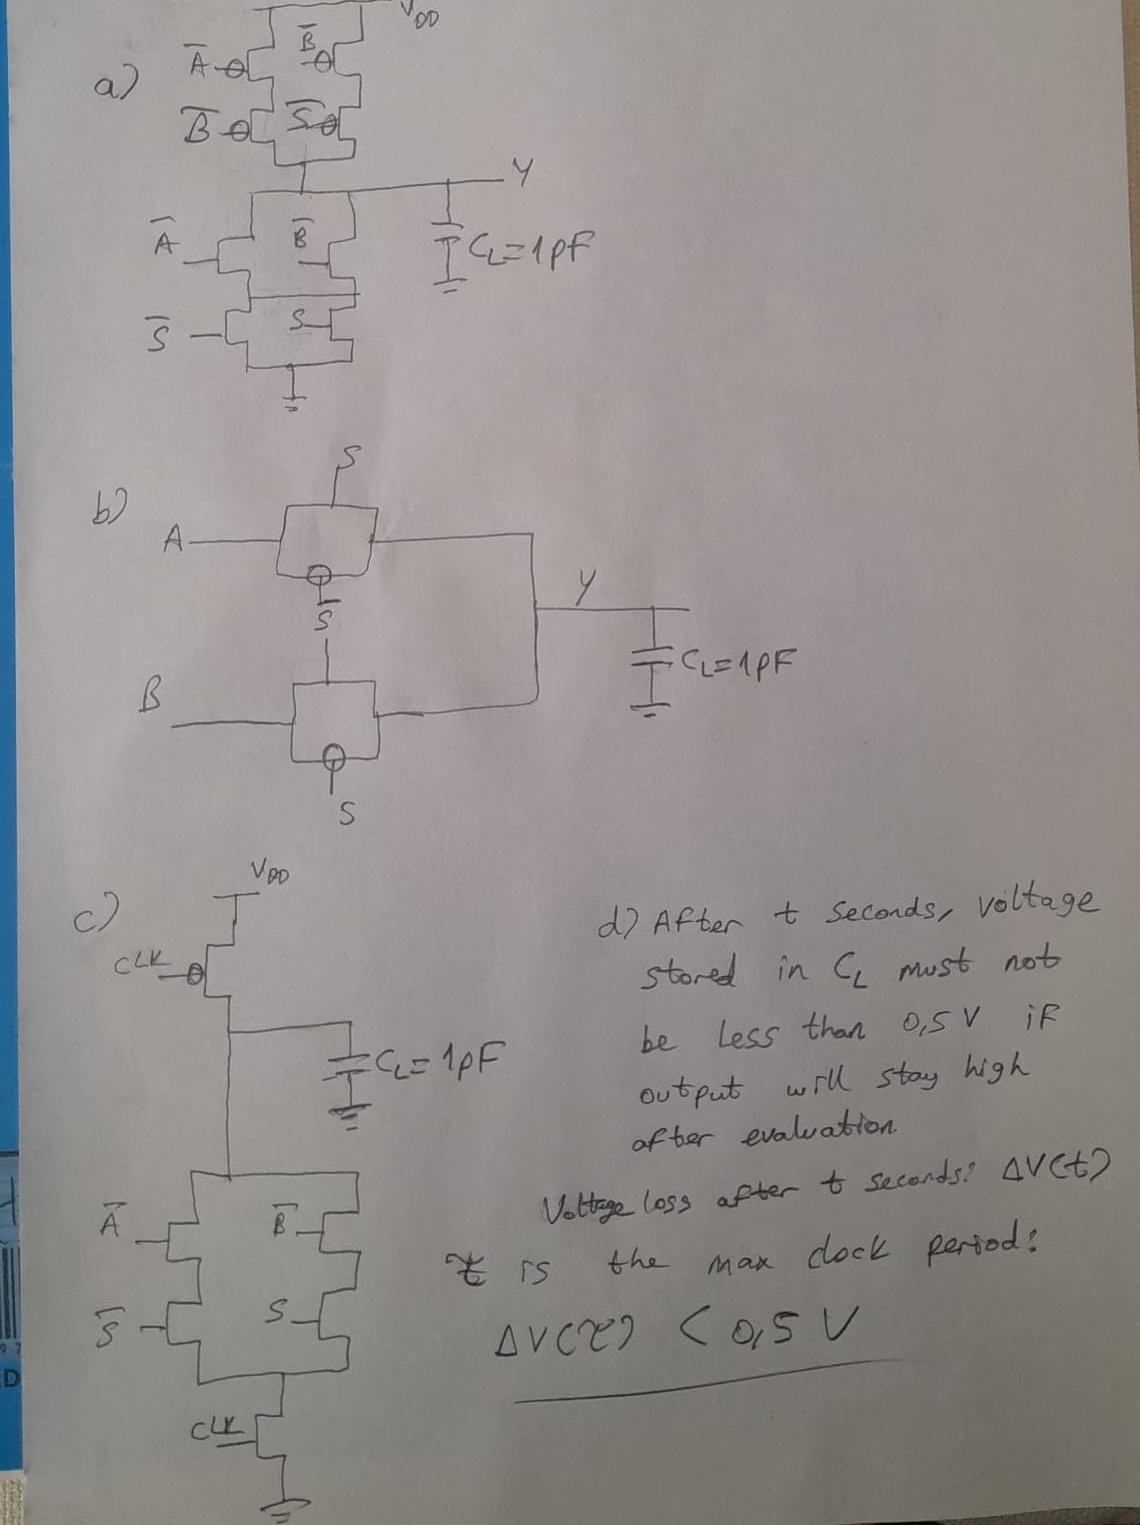 V_DD
a) A̅ B̅
B̅ S̅
Y
A̅ B̅ C_L=1pF
S̅ S
S
b)
A
S̅
Y
C_L=1pF
B
S
V_DD
c)
CLK
C_L=1pF
A̅ B̅
S̅ S
CLK
d) After t seconds, voltage
stored in C_L must not
be less than 0,5 V if
output will stay high
after evaluation
Voltage loss after t seconds: ΔV(t)
τ is the max clock period:
ΔV(τ) < 0,5 V